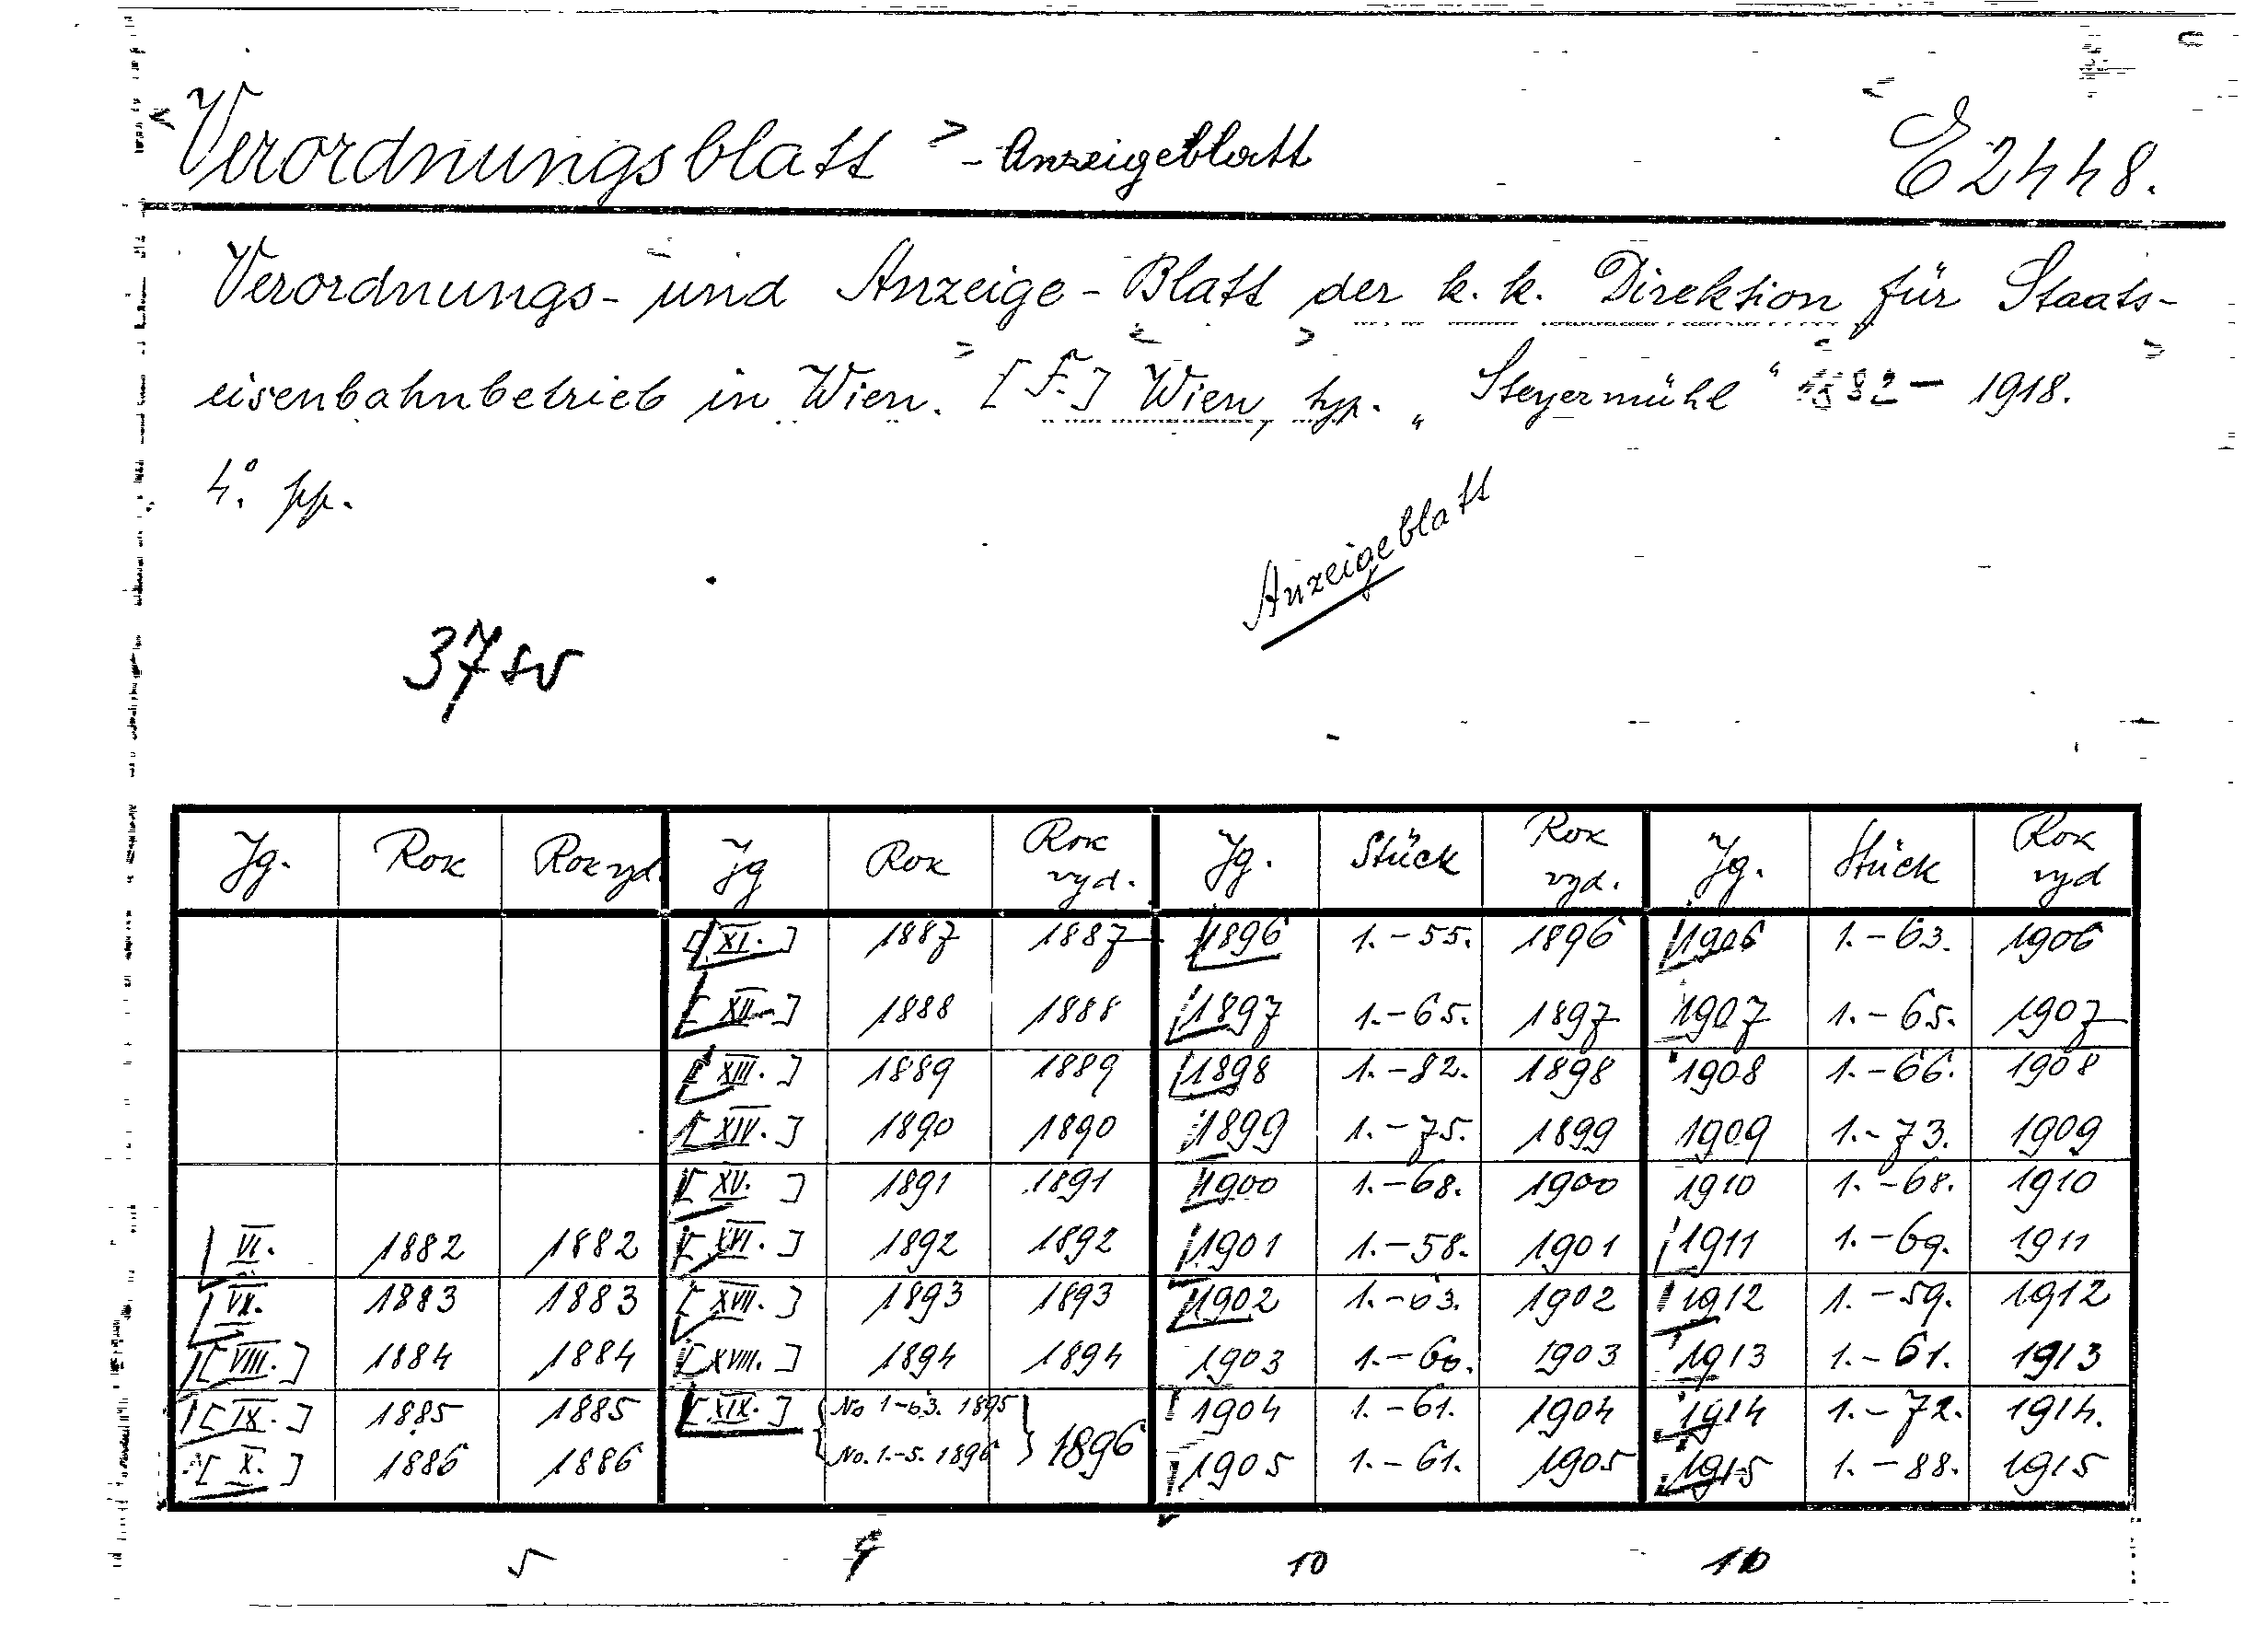 Verordnungsblatt - Anzeigeblatt E 2448.
Verordnungs- und Anzeige-Blatt der k. k. Direktion für Staats-
eisenbahnbetrieb in Wien. [F.] Wien, typ. „Steyermühl“ 1882 - 1918.
4°. pp.
Anzeigeblatt
37 sv
Jg. Rok Rok vyd. Jg Rok Rok vyd. Jg. Stück Rok vyd. Jg. Stück Rok vyd
[XI.] 1887 1887 1896 1.-55. 1896 1906 1.-63. 1906
[XII.] 1888 1888 1897 1.-65. 1897 1907 1.-65. 1907
[XIII.] 1889 1889 1898 1.-82. 1898 1908 1.-66. 1908
[XIV.] 1890 1890 1899 1.-75. 1899 1909 1.-73. 1909
[XV.] 1891 1891 1900 1.-68. 1900 1910 1.-68. 1910
VI. 1882 1882 [XVI.] 1892 1892 1901 1.-58. 1901 1911 1.-69. 1911
1883 1883 [XVII.] 1893 1893 1902 1.-63. 1902 1912 1.-59. 1912
[VIII.] 1884 1884 [XVIII.] 1894 1894 1903 1.-60. 1903 1913 1.-61. 1913
[IX.] 1885 1885 [XIX.] No 1-63. 1895 1904 1.-61. 1904 1914 1.-72. 1914.
[X.] 1886 1886 No. 1.-5. 1896 1896 1905 1.-61. 1905 1915 1.-88. 1915
5 9 10 10